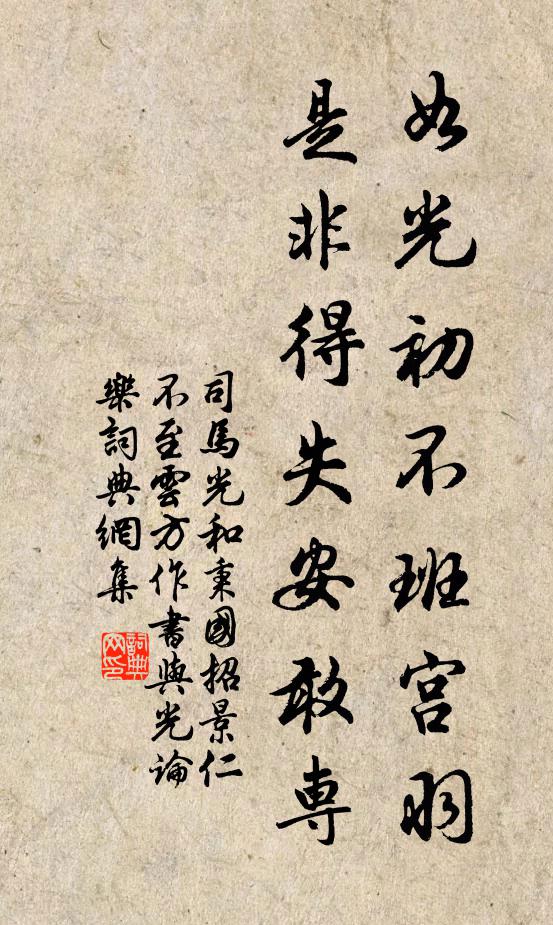 如光初不班宫羽
是非得失安敢専
司馬光和秉國招景仁
不至雲方作書與光論
樂詞典網集
詞典网印